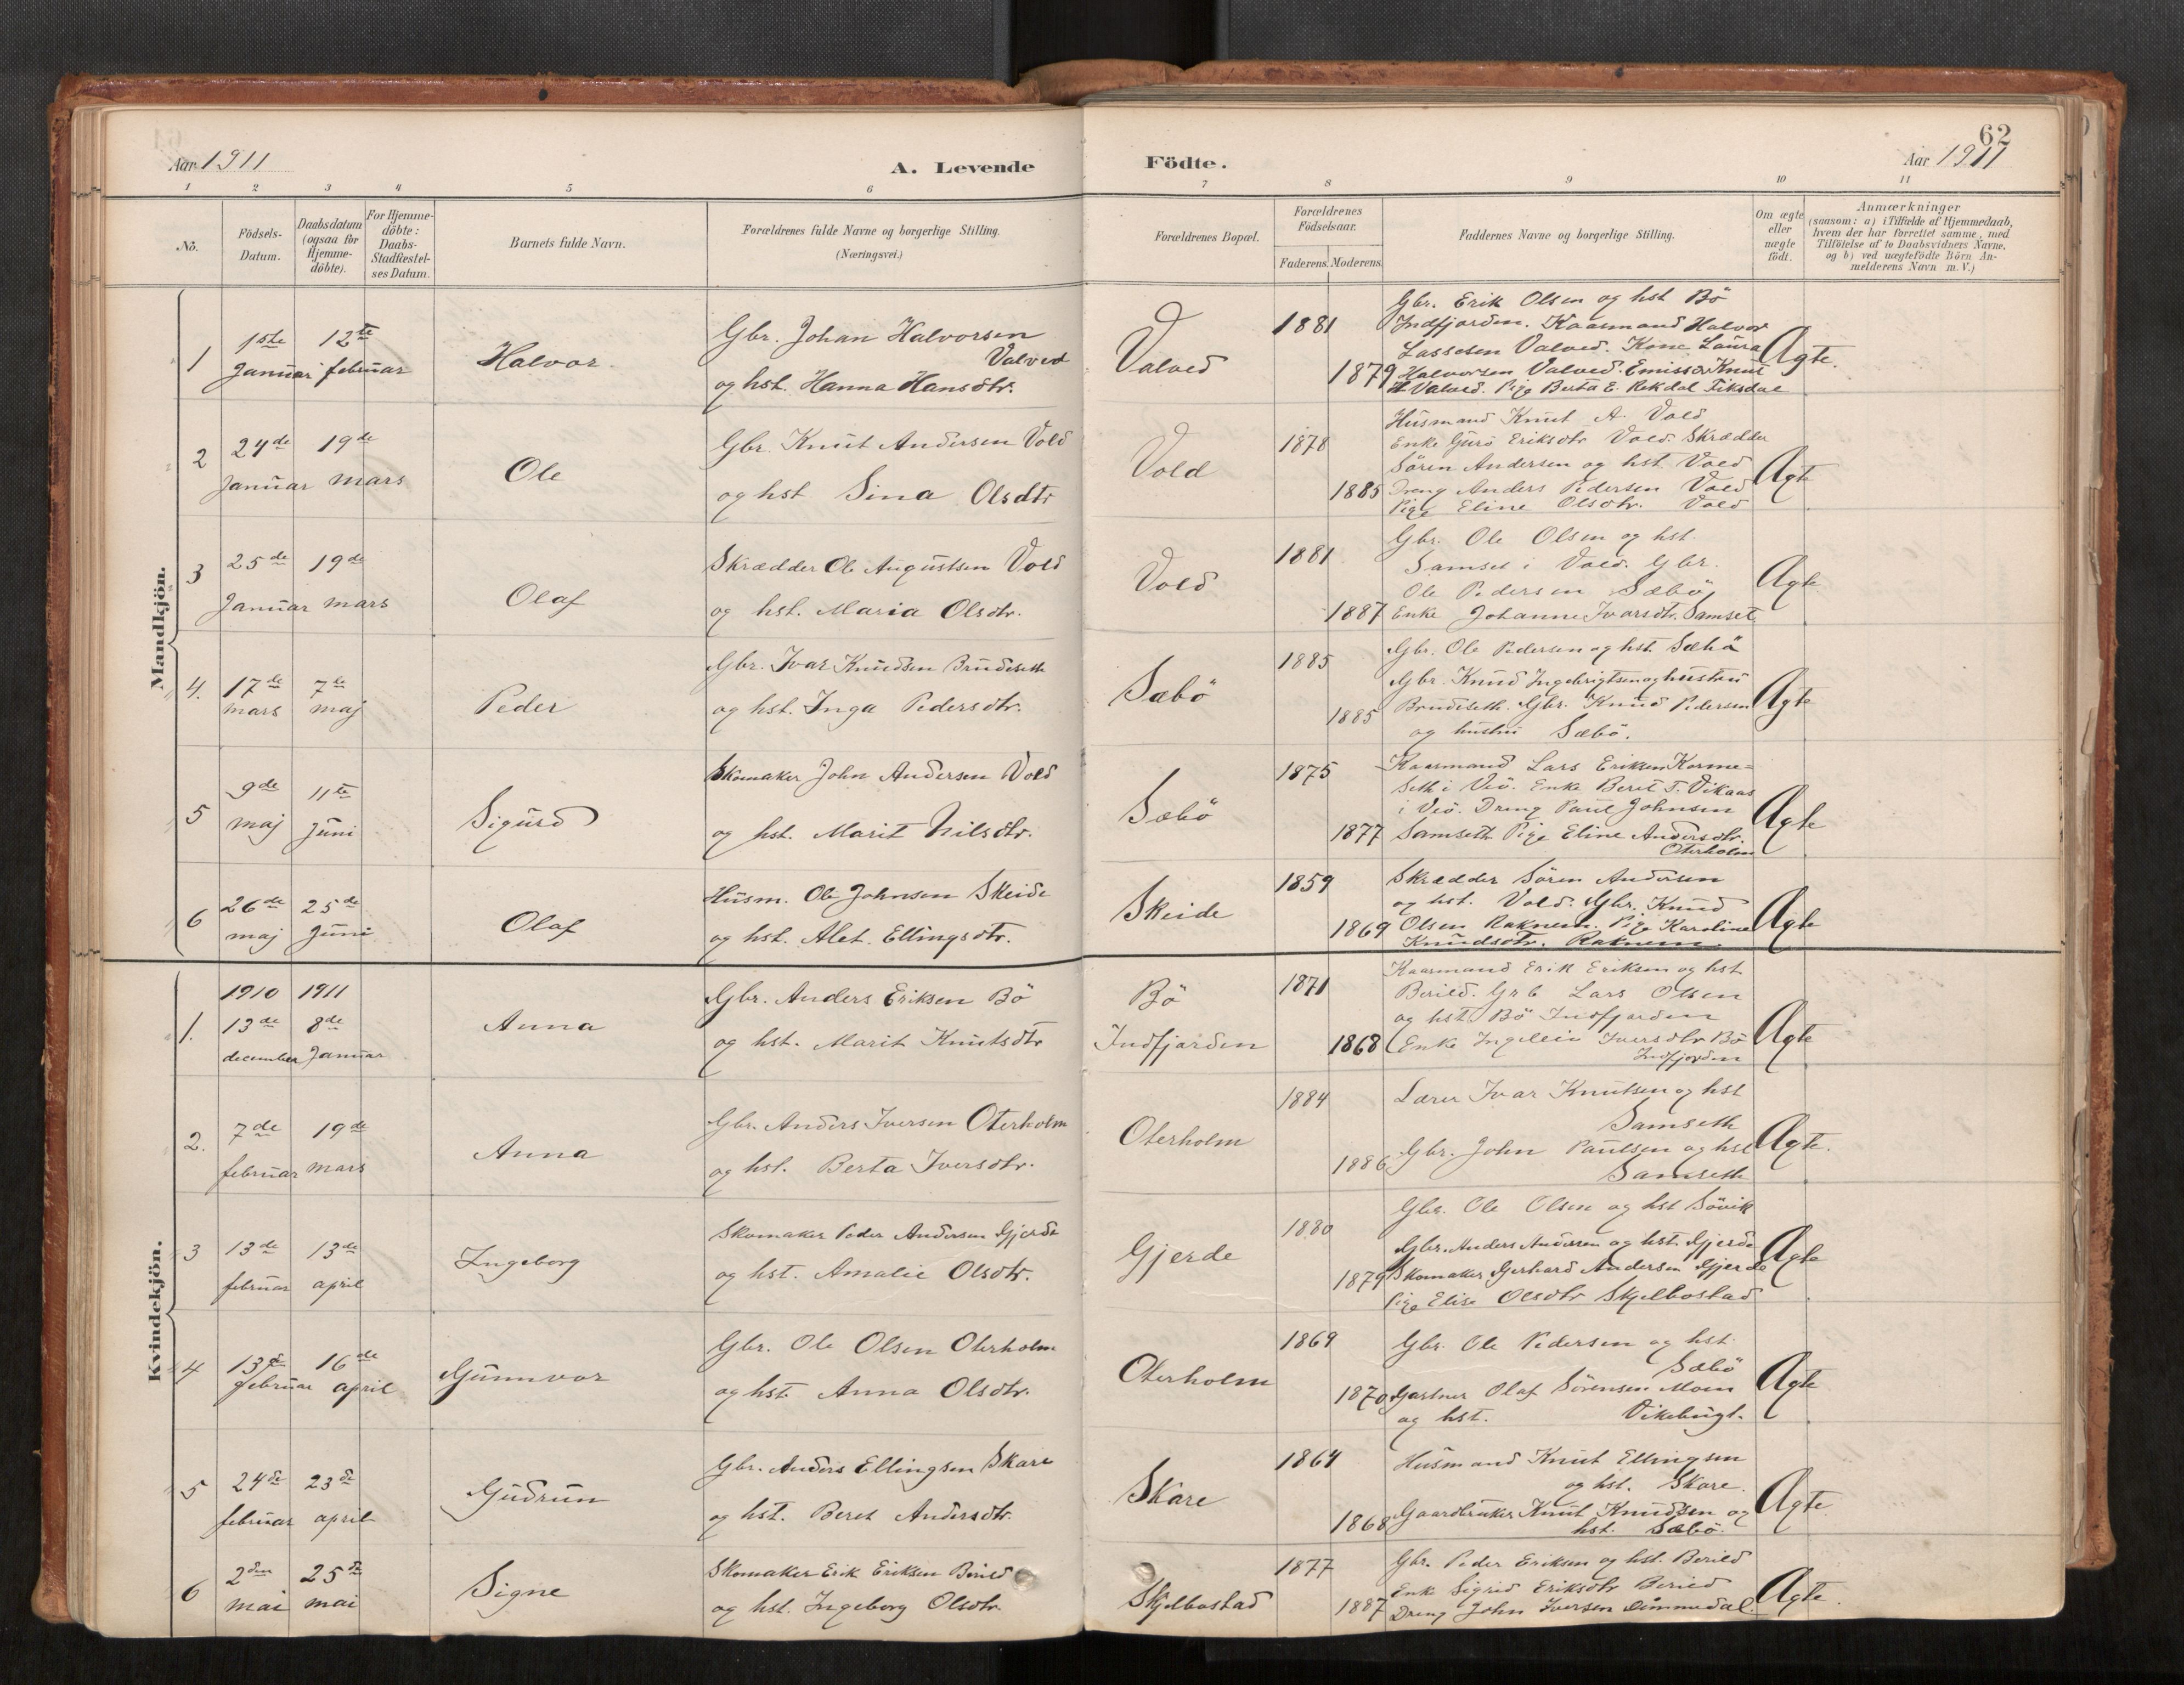 62
Aar 1911
A. Levende
Födte.
Aar 1911
1 2 3 4 5 6 7 8 9 10 11
No.
Födsels-
Datum.
Daabsdatum
(ogsaa for
Hjemme-
döbte).
For Hjemme-
döbte:
Daabs-
Stadfæstel-
ses Datum.
Barnets fulde Navn.
Forældrenes fulde Navne og borgerlige Stilling.
(Næringsvei.)
Forældrenes Bopæl.
Forældrenes
Födselsaar.
Faderens. Moderens.
Faddernes Navne og borgerlige Stilling.
Om ægte
eller
uægte
födt.
Anmærkninger
(saasom: a) i Tilfælde af Hjemmedaab,
hvem der har forrettet samme, med
Tilföielse af to Daabsvidners Navne,
og b) ved uægtefödte Börn An-
melderens Navn m. V.)
Mandkjön.
1
1ste
Januar
12te
februar
Halvor
Gbr. Johan Halvorsen
Valved
og hst. Hanna Hansdtr.
Valved
1881
1879
Gbr. Erik Olsen og hst Bö
Indfjorden. Kaarmand Halvor
Lassesen Valved. Kone Laura
Halvorsen Valved. Emissær Knut
H Valved. Pige Berta E. Rekdal Fiksdal
Ægte.
2
24de
Januar
19de
mars
Ole
Gbr. Knut Andersen Vold
og hst Sina Olsdtr
Vold
1878
1885
Husmand Knut A. Vold
Enke Guro Eriksdtr Vold. Skrædder
Sören Andersen og hst. Vold
Dreng Anders Pedersen Vold
Pige Eline Olsdtr. Vold
Ægte
3
25de
Januar
19de
mars
Olaf
Skrædder Ole Augustsen Vold
og hst. Maria Olsdtr.
Vold
1881
1887
Gbr. Ole Olsen og hst.
Samset i Vold. Gbr.
Ole Pedersen Sæbö
Enke Johanne Ivarsdtr. Samset
Ægte
4.
17de
mars
7de
maj
Peder
Gbr. Ivar Knudsen Brudeseth
og hst. Inga Pedersdtr.
Sæbö
1885
1885
Gbr. Ole Pedersen og hst Sæbö
Gbr. Knud Ingebrigtsen og hustru
Brudeseth. Gbr. Knud Pedersen
og hustru Sæbö.
Ægte
5
9de
maj
11te
Juni
Sigurd
Skomaker John Andersen Vold
og hst. Marit Nilsdtr.
Sæbö
1875
1877
Kaarmand Lars Eriksen Korme=
seth i Veö. Enke Berit T. Vikaas
i Veö. Dreng Paul Johnsen
Samseth Pige Eline Andersdtr.
Oterholm
Ægte
6
26de
maj
25de
Juni
Olaf
Husm. Ole Johnsen Skeide
og hst. Alet. Ellingsdtr.
Skeide
1859
1869
Skrædder Sören Andersen
og hst. Vold. Gbr. Knud
Olsen Raknem. Pige Karoline
Knudsdtr. Raknem.
Ægte
Kvindekjön.
1.
1910
13de
december
1911
8de
Januar
Anna
Gbr. Anders Eriksen Bö
og hst. Marit Knutsdtr
Bö
Indfjorden
1871
1868
Kaarmand Erik Eriksen og hst
Berild. Grb Lars Olsen
og hst. Bö Indfjorden
Enke Ingelein Iversdtr Bö
Indfjorden
Ægte
2.
7de
februar
19de
mars
Anna
Gbr. Anders Iversen Oterholm
og hst. Berta Iversdtr.
Oterholm
1884
1886
Lærer Ivar Knutsen og hst
Samseth
Gbr. John Paulsen og hst
Samseth
Ægte.
3
13de
februar
13de
april
Ingeborg
Skomaker Peder Andersen Gjerde
og hst. Amalie Olsdtr.
Gjerde
1880
1879
Gbr. Ole Olsen og hst Sövik
Gbr. Anders Andersen og hst. Gjerde
Skomaker Gerhard Andersen Gjerde
Pige Elise Olsdtr Skjelbostad
Ægte
4
13de
februar
16de
april
Gunnvor
Gbr. Ole Olsen Oterholm
og hst. Anna Olsdtr.
Oterholm
1869
1870
Gbr. Ole Pedersen og hst.
Sæbö
Gartner Olaf Sörensen Moen
og hst. Vikebugt.
Ægte
5
24de
februar
23de
april
Gudrun
Gbr. Anders Ellingsen Skare
og hst. Beret Andersdtr.
Skare
1864
1868
Husmand Knut Ellingsen
og hst. Skare.
Gaardbruker Knut Knudsen og
hst. Sæbö.
Ægte.
6
2den
mai
25de
mai
Signe
Skomaker Erik Eriksen Berild
og hst. Ingeborg Olsdtr.
Skjelbostad
1877
1887
Gbr. Peder Eriksen og hst. Berild
Enke Sigrid Eriksdtr Berild
Dreng John Iversen Dimmedal.
Ægte.